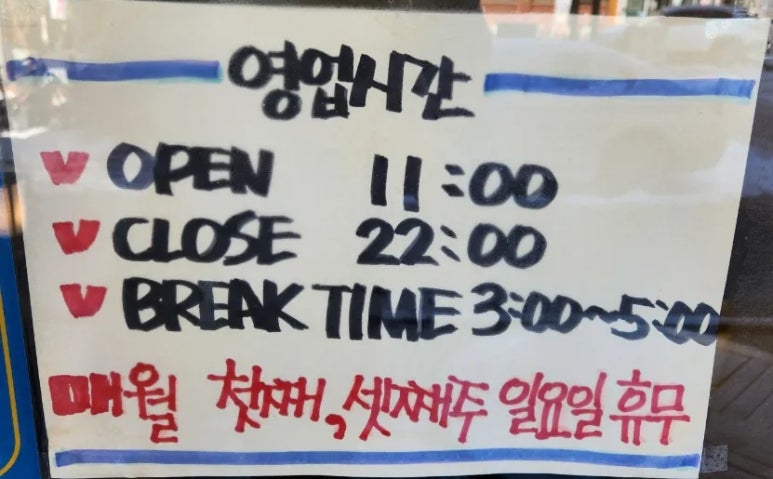 영업시간
V OPEN 11:00
V CLOSE 22:00
V BREAK TIME 3:00~5:00
매월 첫째, 셋째주 일요일 휴무